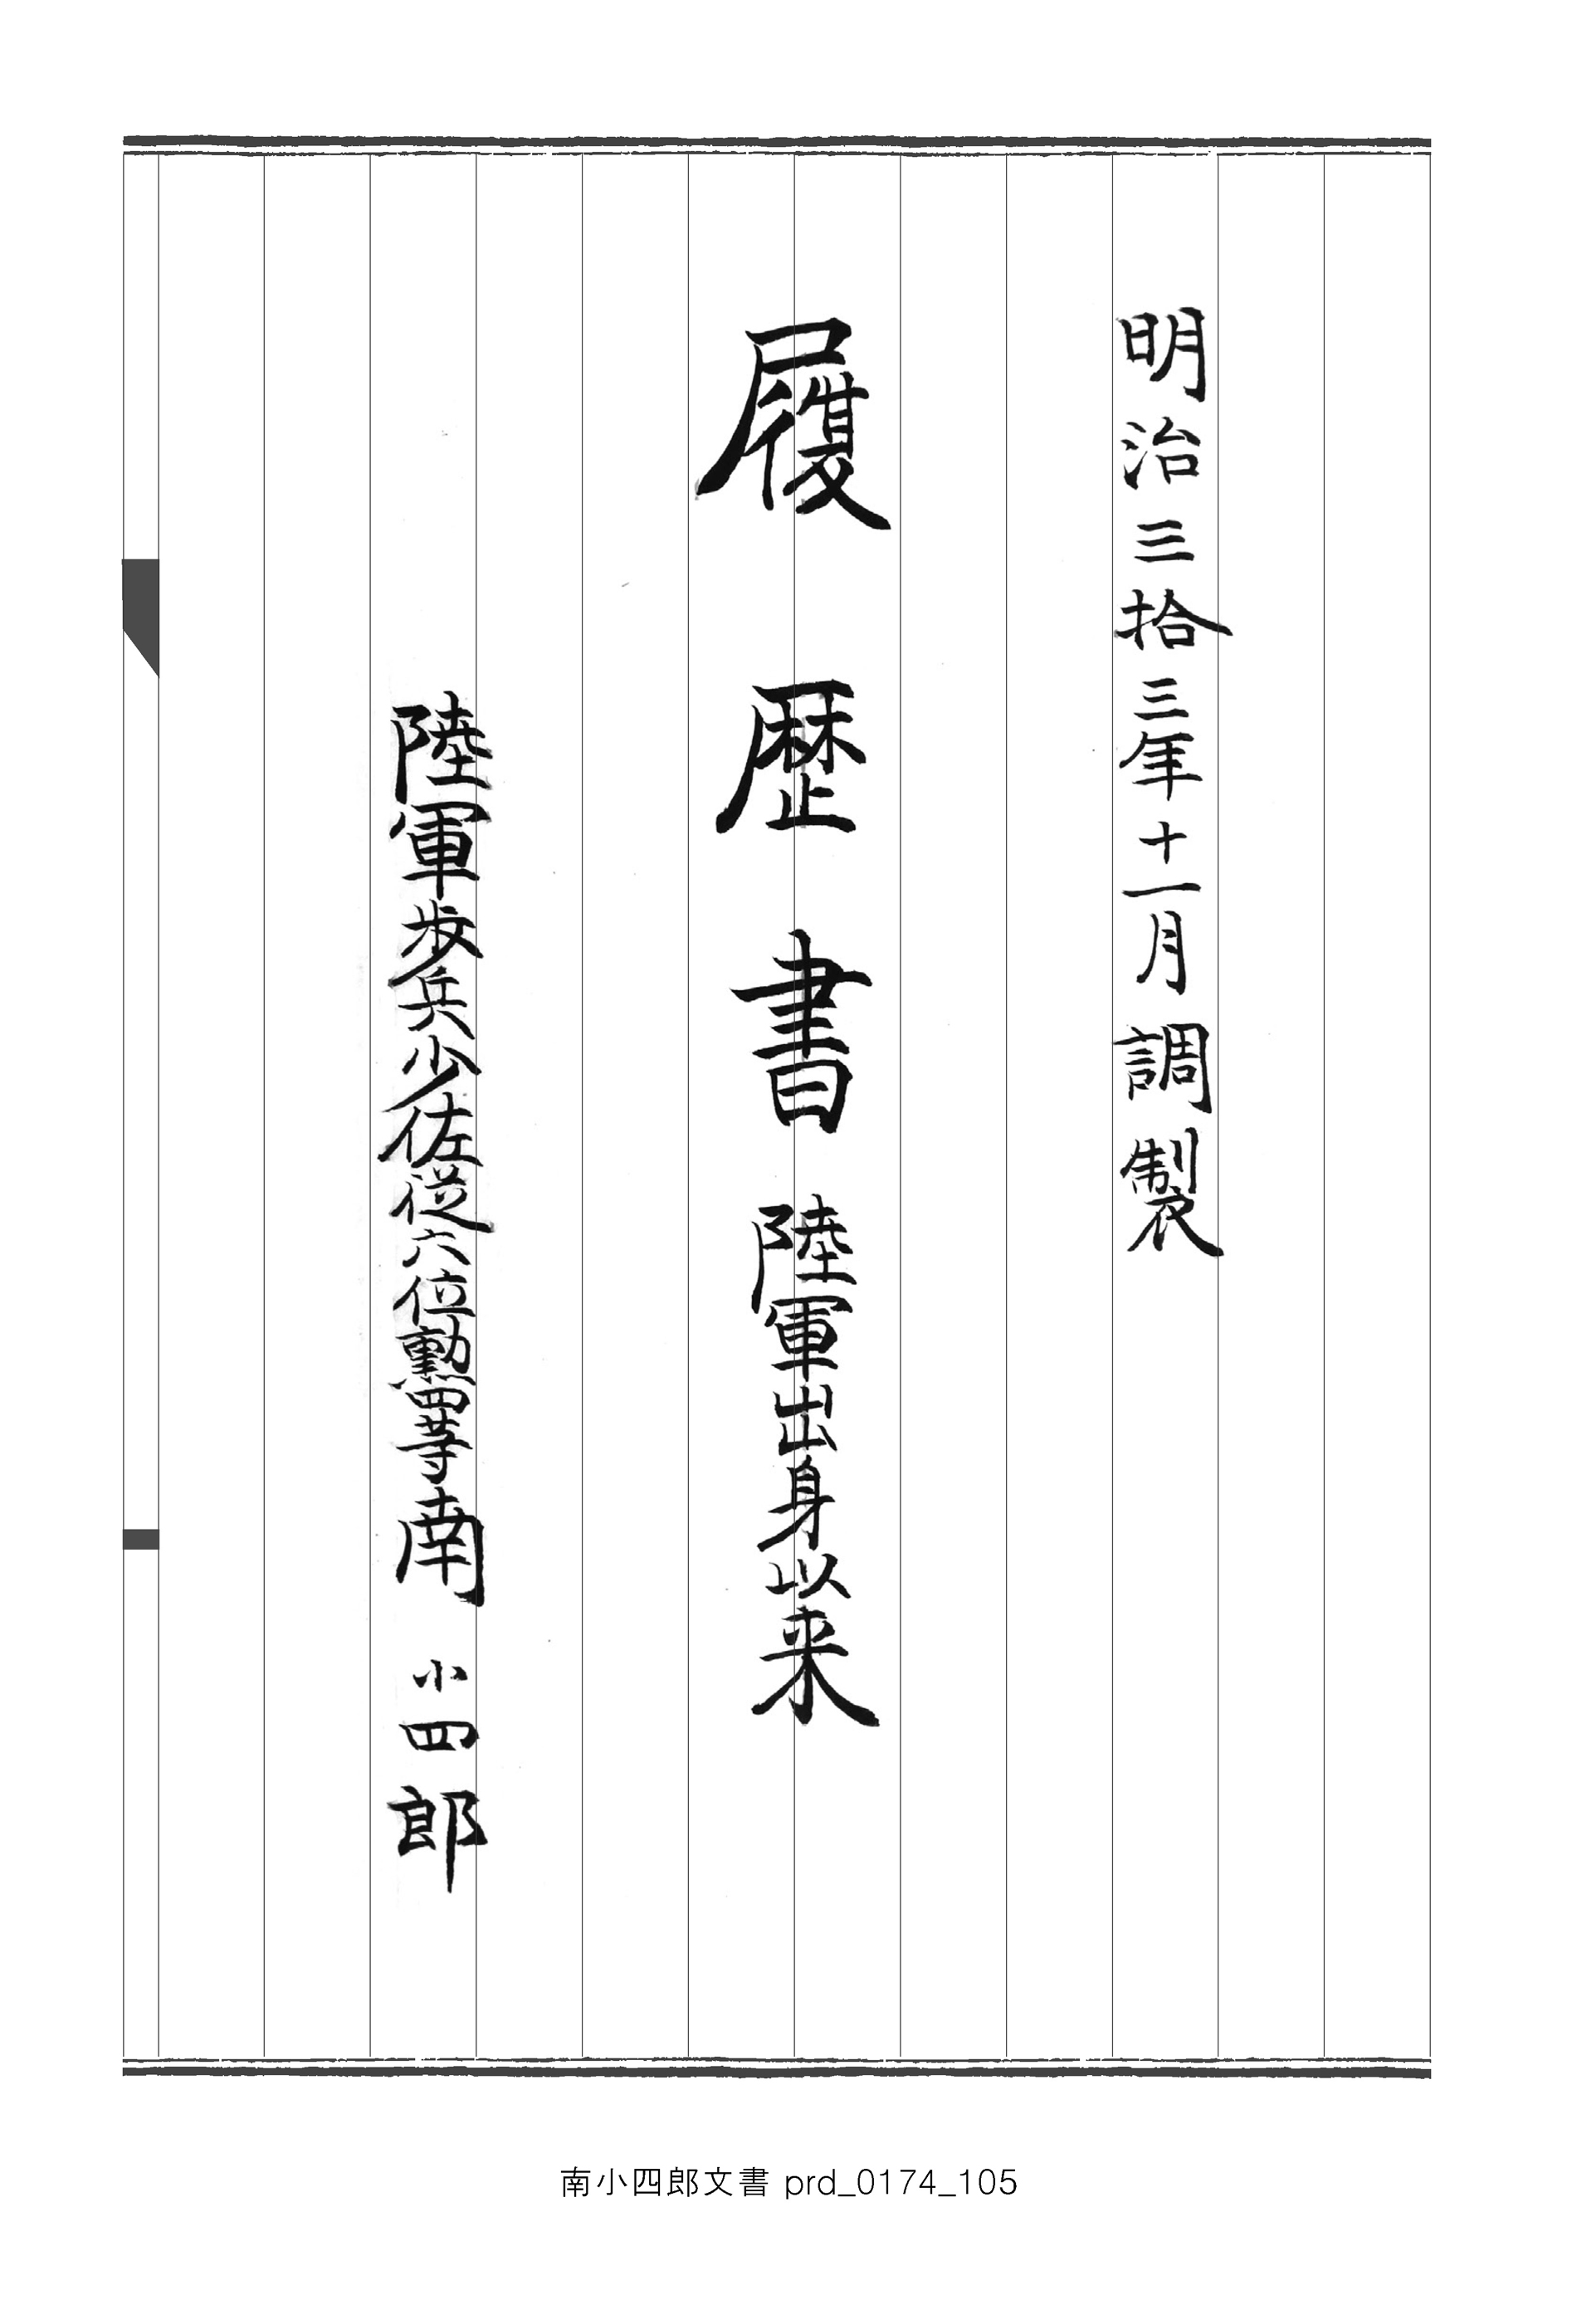 明治三拾三年十一月調製
履歴書 陸軍出身以来
陸軍歩兵少佐従六位勲四等南 小四郎
南小四郎文書 prd_0174_105